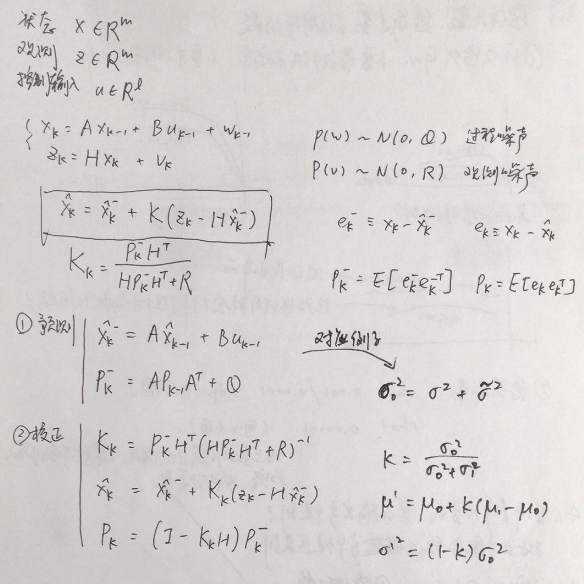 状态 x ∈ R^m
观测 z ∈ R^m
控制输入 u ∈ R^l
{ x_k = A x_{k-1} + B u_{k-1} + w_{k-1}
z_k = H x_k + v_k
p(w) ~ N(0, Q) 过程噪声
p(v) ~ N(0, R) 观测噪声
x̂_k = x̂_k^- + K(z_k - H x̂_k^-)
K_k = P_k^- H^T / (H P_k^- H^T + R)
e_k^- ≡ x_k - x̂_k^- e_k ≡ x_k - x̂_k
P_k^- = E[e_k^- e_k^{-T}] P_k = E[e_k e_k^T]
① 预测
x̂_k^- = A x̂_{k-1} + B u_{k-1}
P_k^- = A P_{k-1} A^T + Q
对应例子
σ_0^2 = σ^2 + σ̃^2
② 校正
K_k = P_k^- H^T (H P_k^- H^T + R)^{-1}
x̂_k = x̂_k^- + K_k(z_k - H x̂_k^-)
P_k = (I - K_k H) P_k^-
K = σ_0^2 / (σ_0^2 + σ_1^2)
μ' = μ_0 + k(μ_1 - μ_0)
σ'^2 = (1-k) σ_0^2